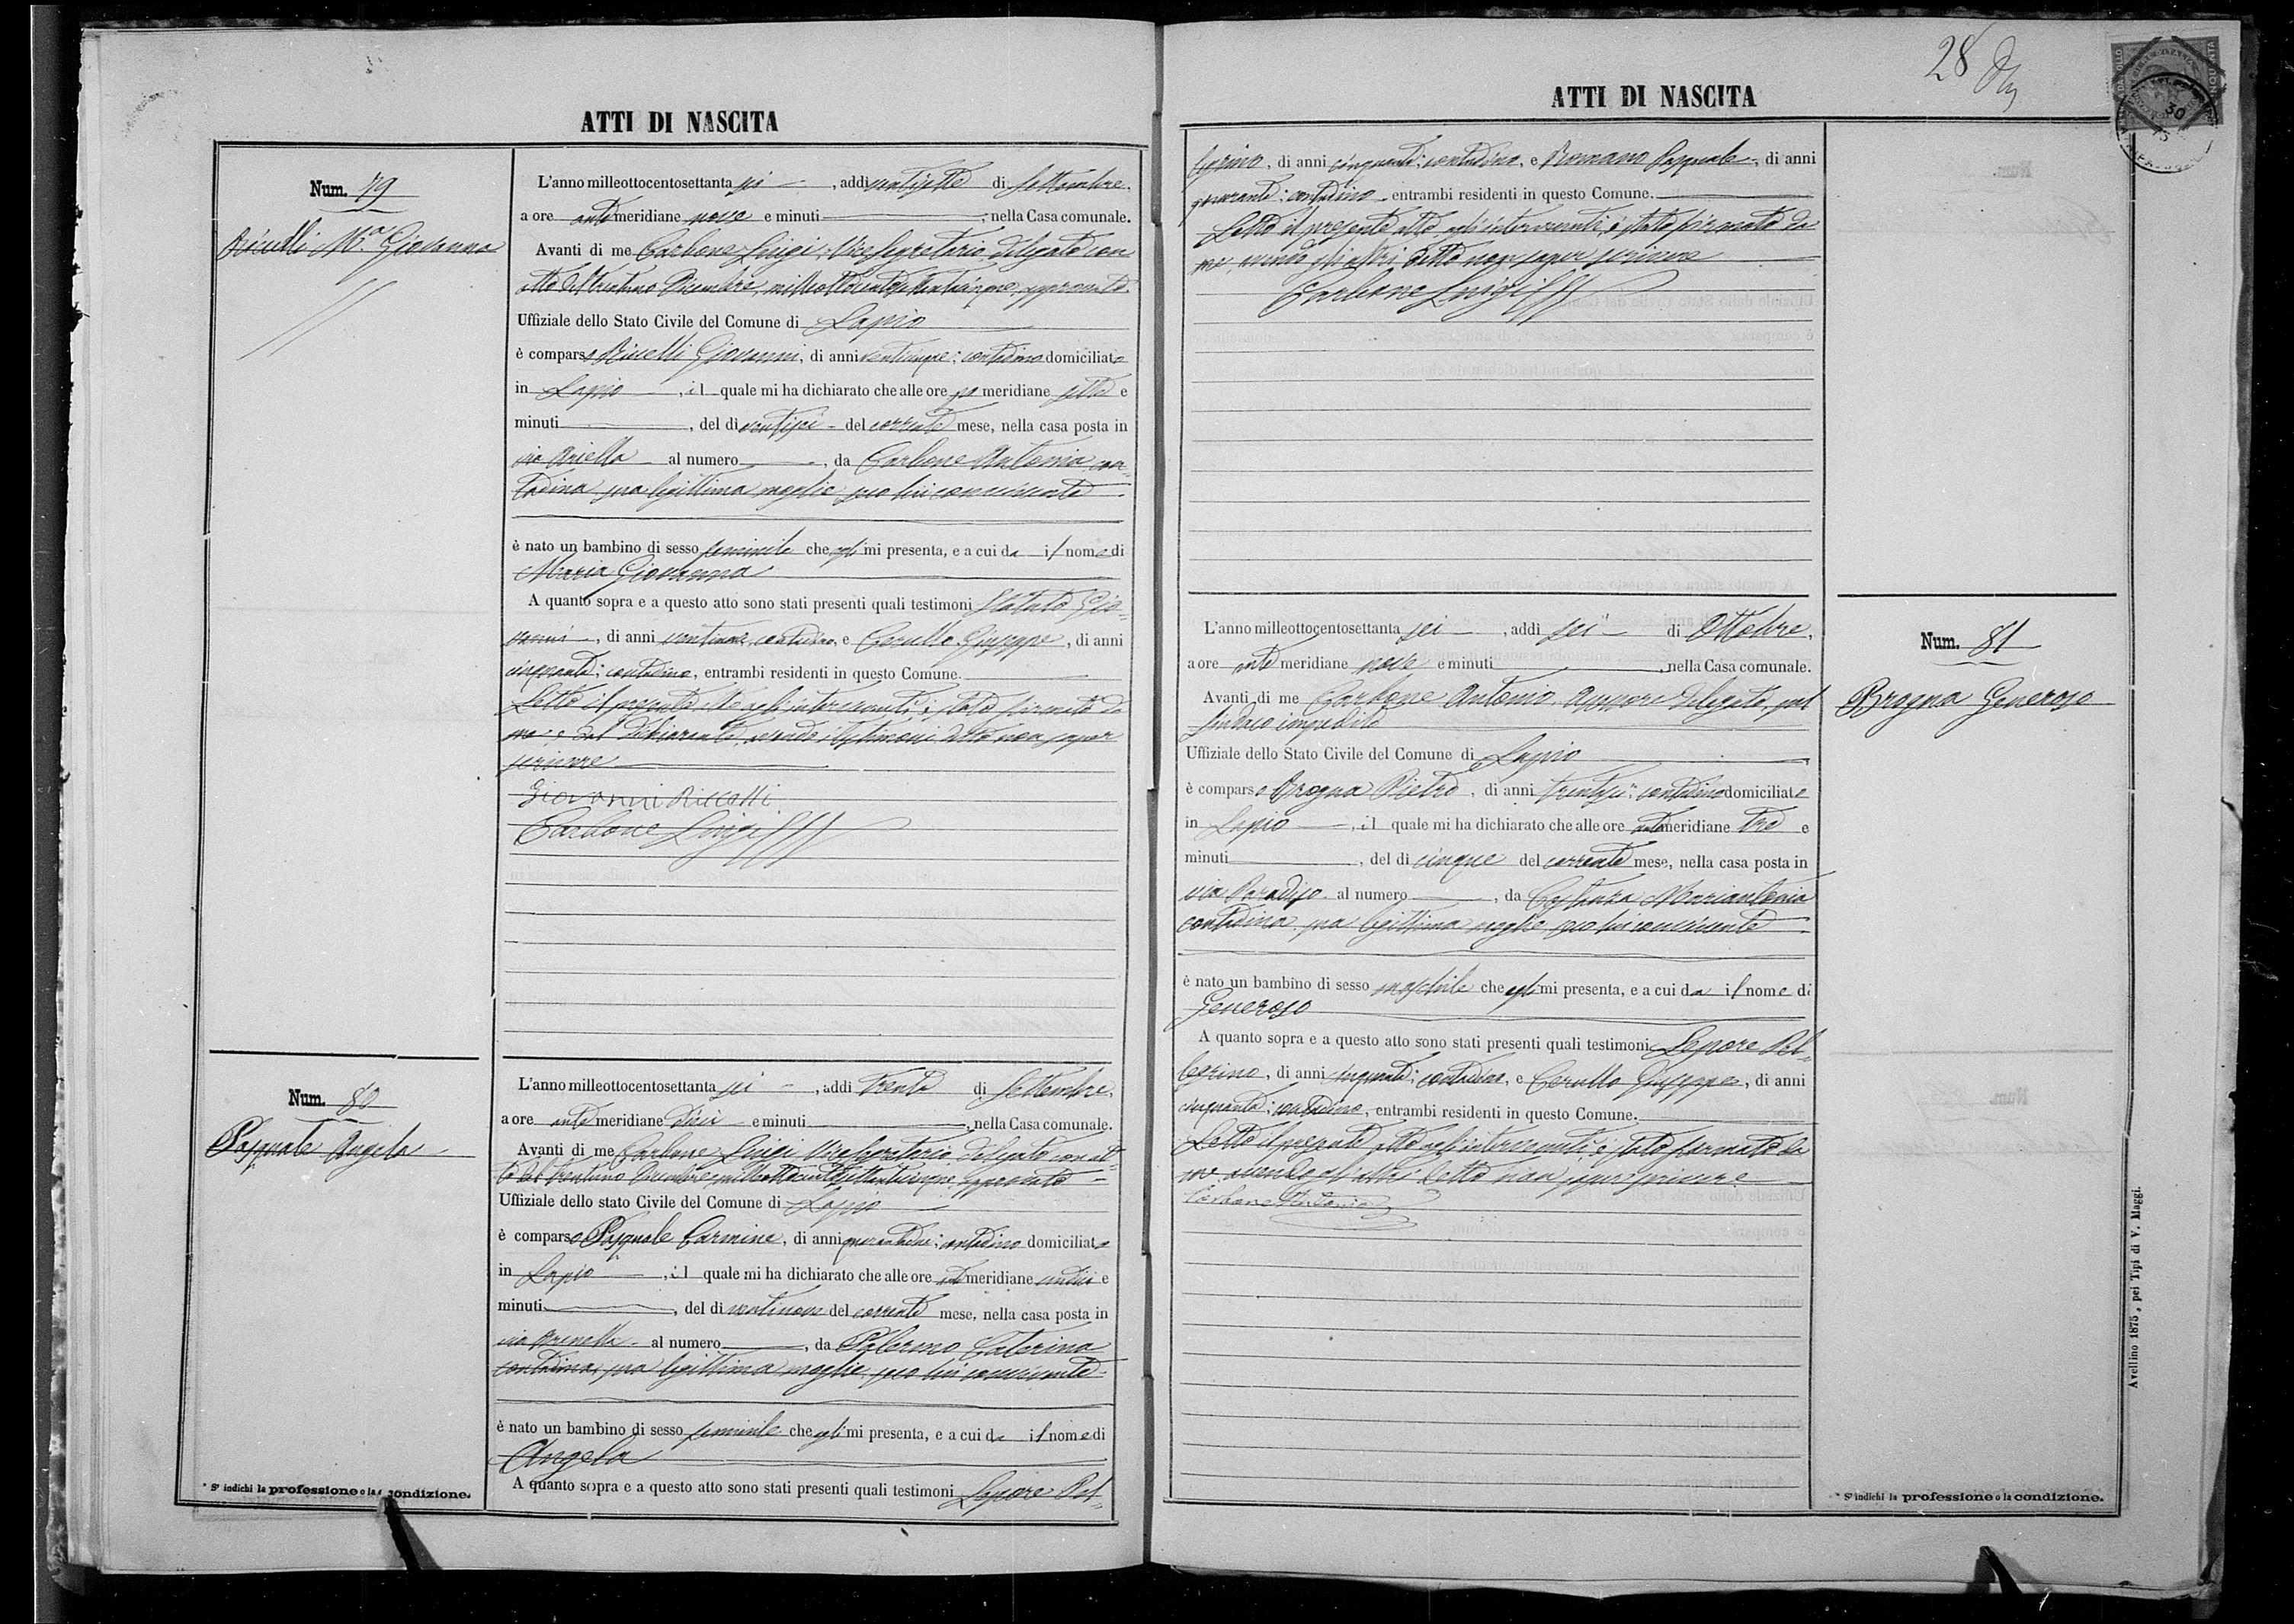 ATTI DI NASCITA
Num. 79
Riccelli M.a Giovanna
L'anno milleottocentosettanta sei, addì ventisette di Settembre,
a ore antemeridiane nove e minuti, nella Casa comunale.
Avanti di me Carbone Luigi, Vice Segretario delegato con
atto del trentuno Dicembre milleottocentosettantacinque, approvato
Uffiziale dello Stato Civile del Comune di Lapio
è comparso Riccelli Giovanni, di anni venticinque; contadino domiciliato
in Lapio, il quale mi ha dichiarato che alle ore pomeridiane sette e
minuti, del dì ventisei del corrente mese, nella casa posta in
via al numero, da Carbone Antonia con=
tadina sua legittima moglie seco lui convivente
è nato un bambino di sesso feminile che egli mi presenta, e a cui da il nome di
Maria Giovanna
A quanto sopra e a questo atto sono stati presenti quali testimoni Gio=
vanni, di anni contadino, e Cerullo Giuseppe, di anni
cinquanta; contadino, entrambi residenti in questo Comune.
Letto il presente atto agli intervenuti, è stato firmato da
me, e dal dichiarante, avendo i testimoni detto non saper
scrivere
Giovanni Riccelli
Carbone Luigi
Num. 80
Pasquale Angela
L'anno milleottocentosettanta sei, addì trenta di Settembre,
a ore antemeridiane dieci e minuti, nella Casa comunale.
Avanti di me Carbone Luigi Vice Segretario delegato con at=
to del trentuno Dicembre milleottocentosettantacinque, approvato
Uffiziale dello stato Civile del Comune di Lapio
è comparso Pasquale Carmine, di anni quarantadue; contadino domiciliato
in Lapio, il quale mi ha dichiarato che alle ore antemeridiane undici e
minuti, del dì ventinove del corrente mese, nella casa posta in
via al numero, da Palermo Caterina
contadina, sua legittima moglie, seco lui convivente
è nato un bambino di sesso feminile che egli mi presenta, e a cui da il nome di
Angela
A quanto sopra e a questo atto sono stati presenti quali testimoni Lepore Pel=
* S' indichi la professione o la condizione.
28
ATTI DI NASCITA
legrino, di anni cinquanta; contadino, e Romano Pasquale, di anni
quaranta; contadino, entrambi residenti in questo Comune.
Letto il presente atto agli intervenuti, è stato firmato da
me, avendo gli altri detto non saper scrivere
Carbone Luigi
Num. 81
Brogna Generoso
L'anno milleottocentosettanta sei, addì sei di Ottobre,
a ore antemeridiane nove e minuti, nella Casa comunale.
Avanti di me Carbone Antonio, Assessore delegato, pel
Sindaco impedito
Uffiziale dello Stato Civile del Comune di Lapio
è comparso Brogna Pietro, di anni trentasei; contadino domiciliato
in Lapio, il quale mi ha dichiarato che alle ore antemeridiane tre e
minuti, del dì cinque del corrente mese, nella casa posta in
via Paradiso al numero, da Costanza Mariantonia
contadina, sua legittima moglie, seco lui convivente
è nato un bambino di sesso maschile che egli mi presenta, e a cui da il nome di
Generoso
A quanto sopra e a questo atto sono stati presenti quali testimoni Lepore Pel=
legrino, di anni cinquanta; contadino, e Cerullo Giuseppe, di anni
cinquanta; contadino, entrambi residenti in questo Comune.
Letto il presente atto agli intervenuti, è stato firmato da
me avendo gli altri detto non saper scrivere
Carbone Antonio
Avellino 1875, pei Tipi di V. Maggi.
* S' indichi la professione o la condizione.